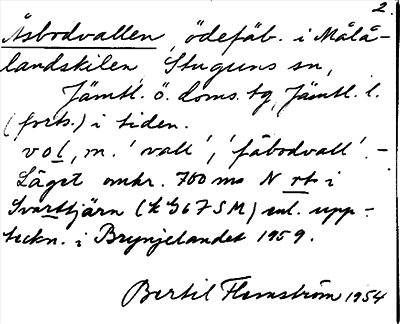 2.
Åsbodvallen, ödefäb. i Målå-
landskilen, Stuguns sn,
Jämtl. ö. doms. tg, Jämtl. l.
(forts.) i tiden.
vol, m. 'vall', 'fäbodvall'. -
Läget omkr. 700 m N rt. i
Svarttjärn ( 67 SM) enl. upp-
teckn. i Brynjelandet 1959.
Bertil Flemström 1954